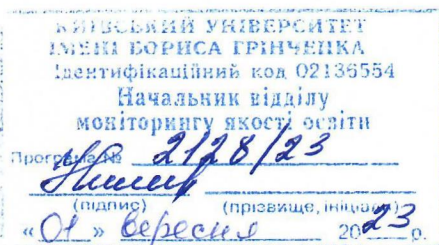 КИЇВСЬКИЙ УНІВЕРСИТЕТ
ІМЕНІ БОРИСА ГРІНЧЕНКА
Ідентифікаційний код 02136554
Начальник відділу
моніторингу якості освіти
Програма № 2128/23
(підпис) (прізвище, ініціали)
«01» вересня 2023 р.